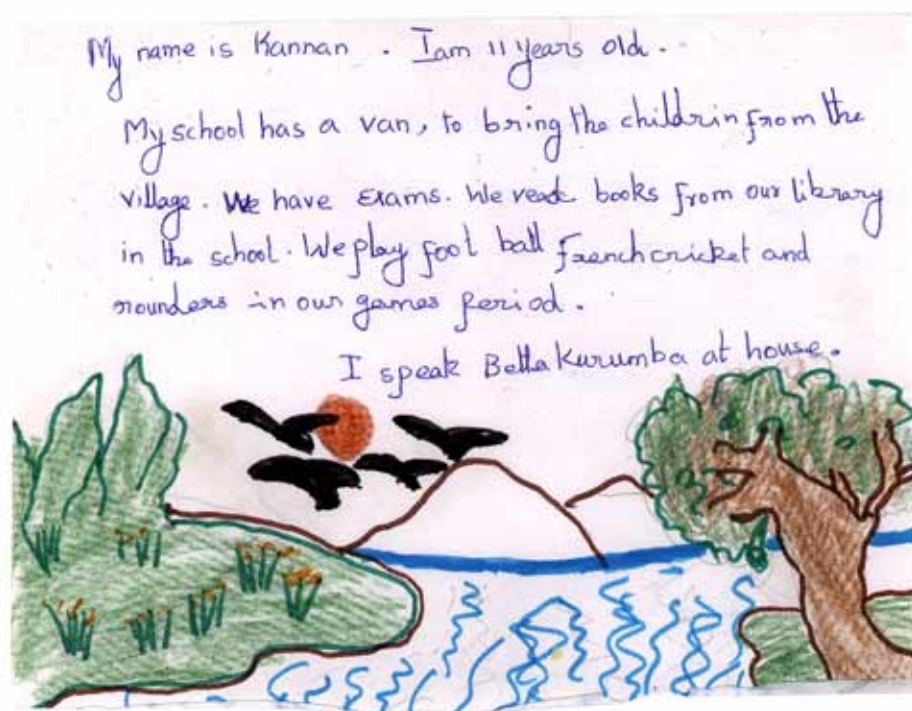 My name is Kannan. I am 11 years old.
My school has a van, to bring the childrin from the
village. We have Exams. We read books from our library
in the school. We play foot ball frenchcricket and
rounders in our games period.
I speak Betta Kurumba at house.